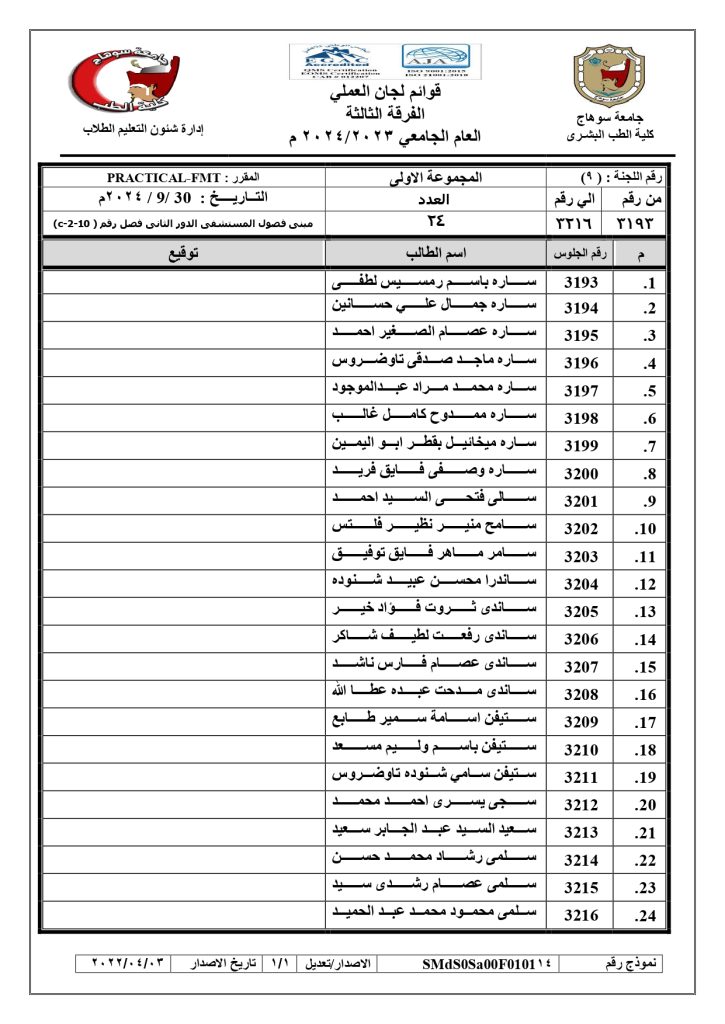 جامعة سوهاج
كلية الطب
إدارة شئون التعليم الطلاب
EGAC
Accredited
QMS Certification
EOMS Certification
CAB # 012207
AJA
ISO 9001/2015
ISO 21001-2018
قوائم لجان العملي
الفرقة الثالثة
العام الجامعي ٢٠٢٤/٢٠٢٣ م
جامعة سوهاج
كلية الطب البشرى
رقم اللجنة : ( ٩ ) المجموعة الاولى المقرر : PRACTICAL-FMT
من رقم الي رقم العدد التــاريــــخ : 30 /9 / ٢٠٢٤م
٣١٩٣ ٣٢١٦ ٢٤ مبنى فصول المستشفى الدور الثانى فصل رقم ( c-2-10)
م رقم الجلوس اسم الطالب توقيع
1. 3193 ساره باسم رمسيس لطفى
2. 3194 ساره جمال علي حسانين
3. 3195 ساره عصام الصغير احمد
4. 3196 ساره ماجد صدقى تاوضروس
5. 3197 ساره محمد مراد عبدالموجود
6. 3198 ساره ممدوح كامل غالب
7. 3199 ساره ميخائيل بقطر ابو اليمين
8. 3200 ساره وصفى فايق فريد
9. 3201 سالى فتحى السيد احمد
10. 3202 سامح منير نظير فلتس
11. 3203 سامر ماهر فايق توفيق
12. 3204 ساندرا محسن عبيد شنوده
13. 3205 ساندى ثروت فؤاد خير
14. 3206 ساندى رفعت لطيف شاكر
15. 3207 ساندى عصام فارس ناشد
16. 3208 ساندى مدحت عبده عطا الله
17. 3209 ستيفن اسامة سمير طايع
18. 3210 ستيفن باسم وليم مسعد
19. 3211 ستيفن سامي شنوده تاوضروس
20. 3212 سجى يسرى احمد محمد
21. 3213 سعيد السيد عبد الجابر سعيد
22. 3214 سلمى رشاد محمد حسن
23. 3215 سلمى عصام رشدى سيد
24. 3216 سلمى محمود محمد عبد الحميد
نموذج رقم SMdS0Sa00F0101١٤ الاصدار/تعديل ١/١ تاريخ الاصدار ٢٠٢٢/٠٤/٠٣